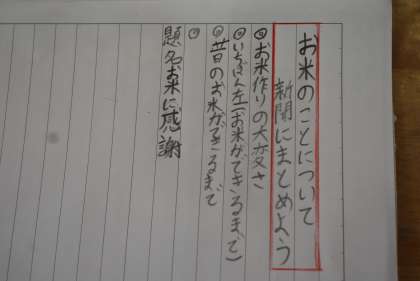 お米のことについて
新聞にまとめよう
◎お米作りの大変さ
◎いちばん左(お米ができるまで)
◎昔のお米ができるまで
◎
題名お米に感謝